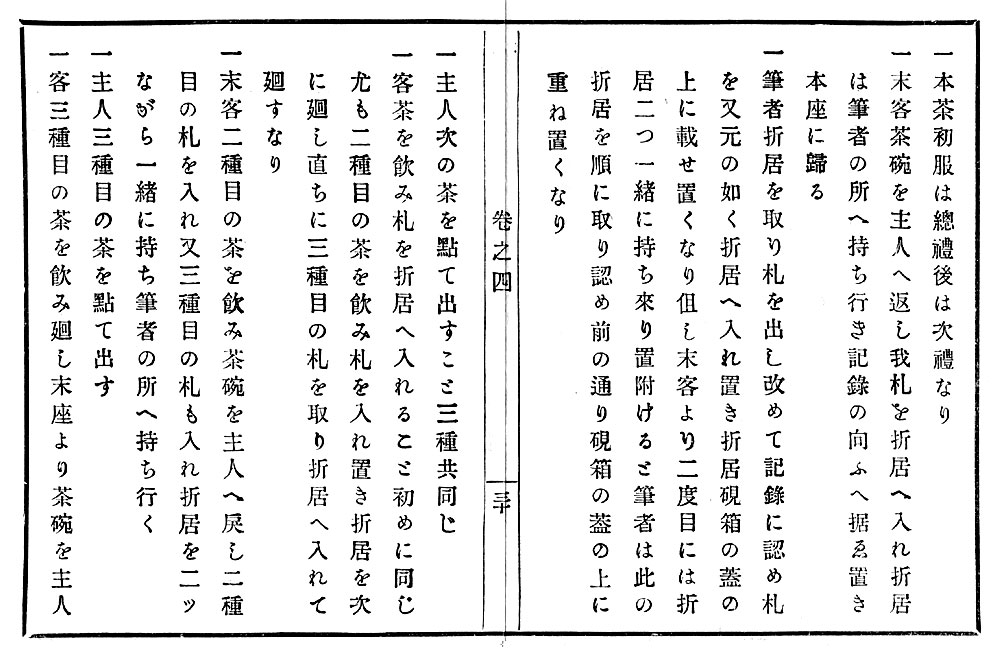 一本茶初服は總禮後は次禮なり
一末客茶碗を主人へ返し我札を折居へ入れ折居
は筆者の所へ持ち行き記錄の向ふへ据ゑ置き
本座に歸る
一筆者折居を取り札を出し改めて記錄に認め札
を又元の如く折居へ入れ置き折居硯箱の蓋の
上に載せ置くなり但し末客より二度目には折
居二つ一緒に持ち來り置附けると筆者は此の
折居を順に取り認め前の通り硯箱の蓋の上に
重ね置くなり
卷之四
三十
一主人次の茶を點て出すこと三種共同じ
一客茶を飮み札を折居へ入れること初めに同じ
尤も二種目の茶を飮み札を入れ置き折居を次
に廻し直ちに三種目の札を取り折居へ入れて
廻すなり
一末客二種目の茶を飮み茶碗を主人へ戾し二種
目の札を入れ又三種目の札も入れ折居を二ッ
ながら一緒に持ち筆者の所へ持ち行く
一主人三種目の茶を點て出す
一客三種目の茶を飮み廻し末座より茶碗を主人